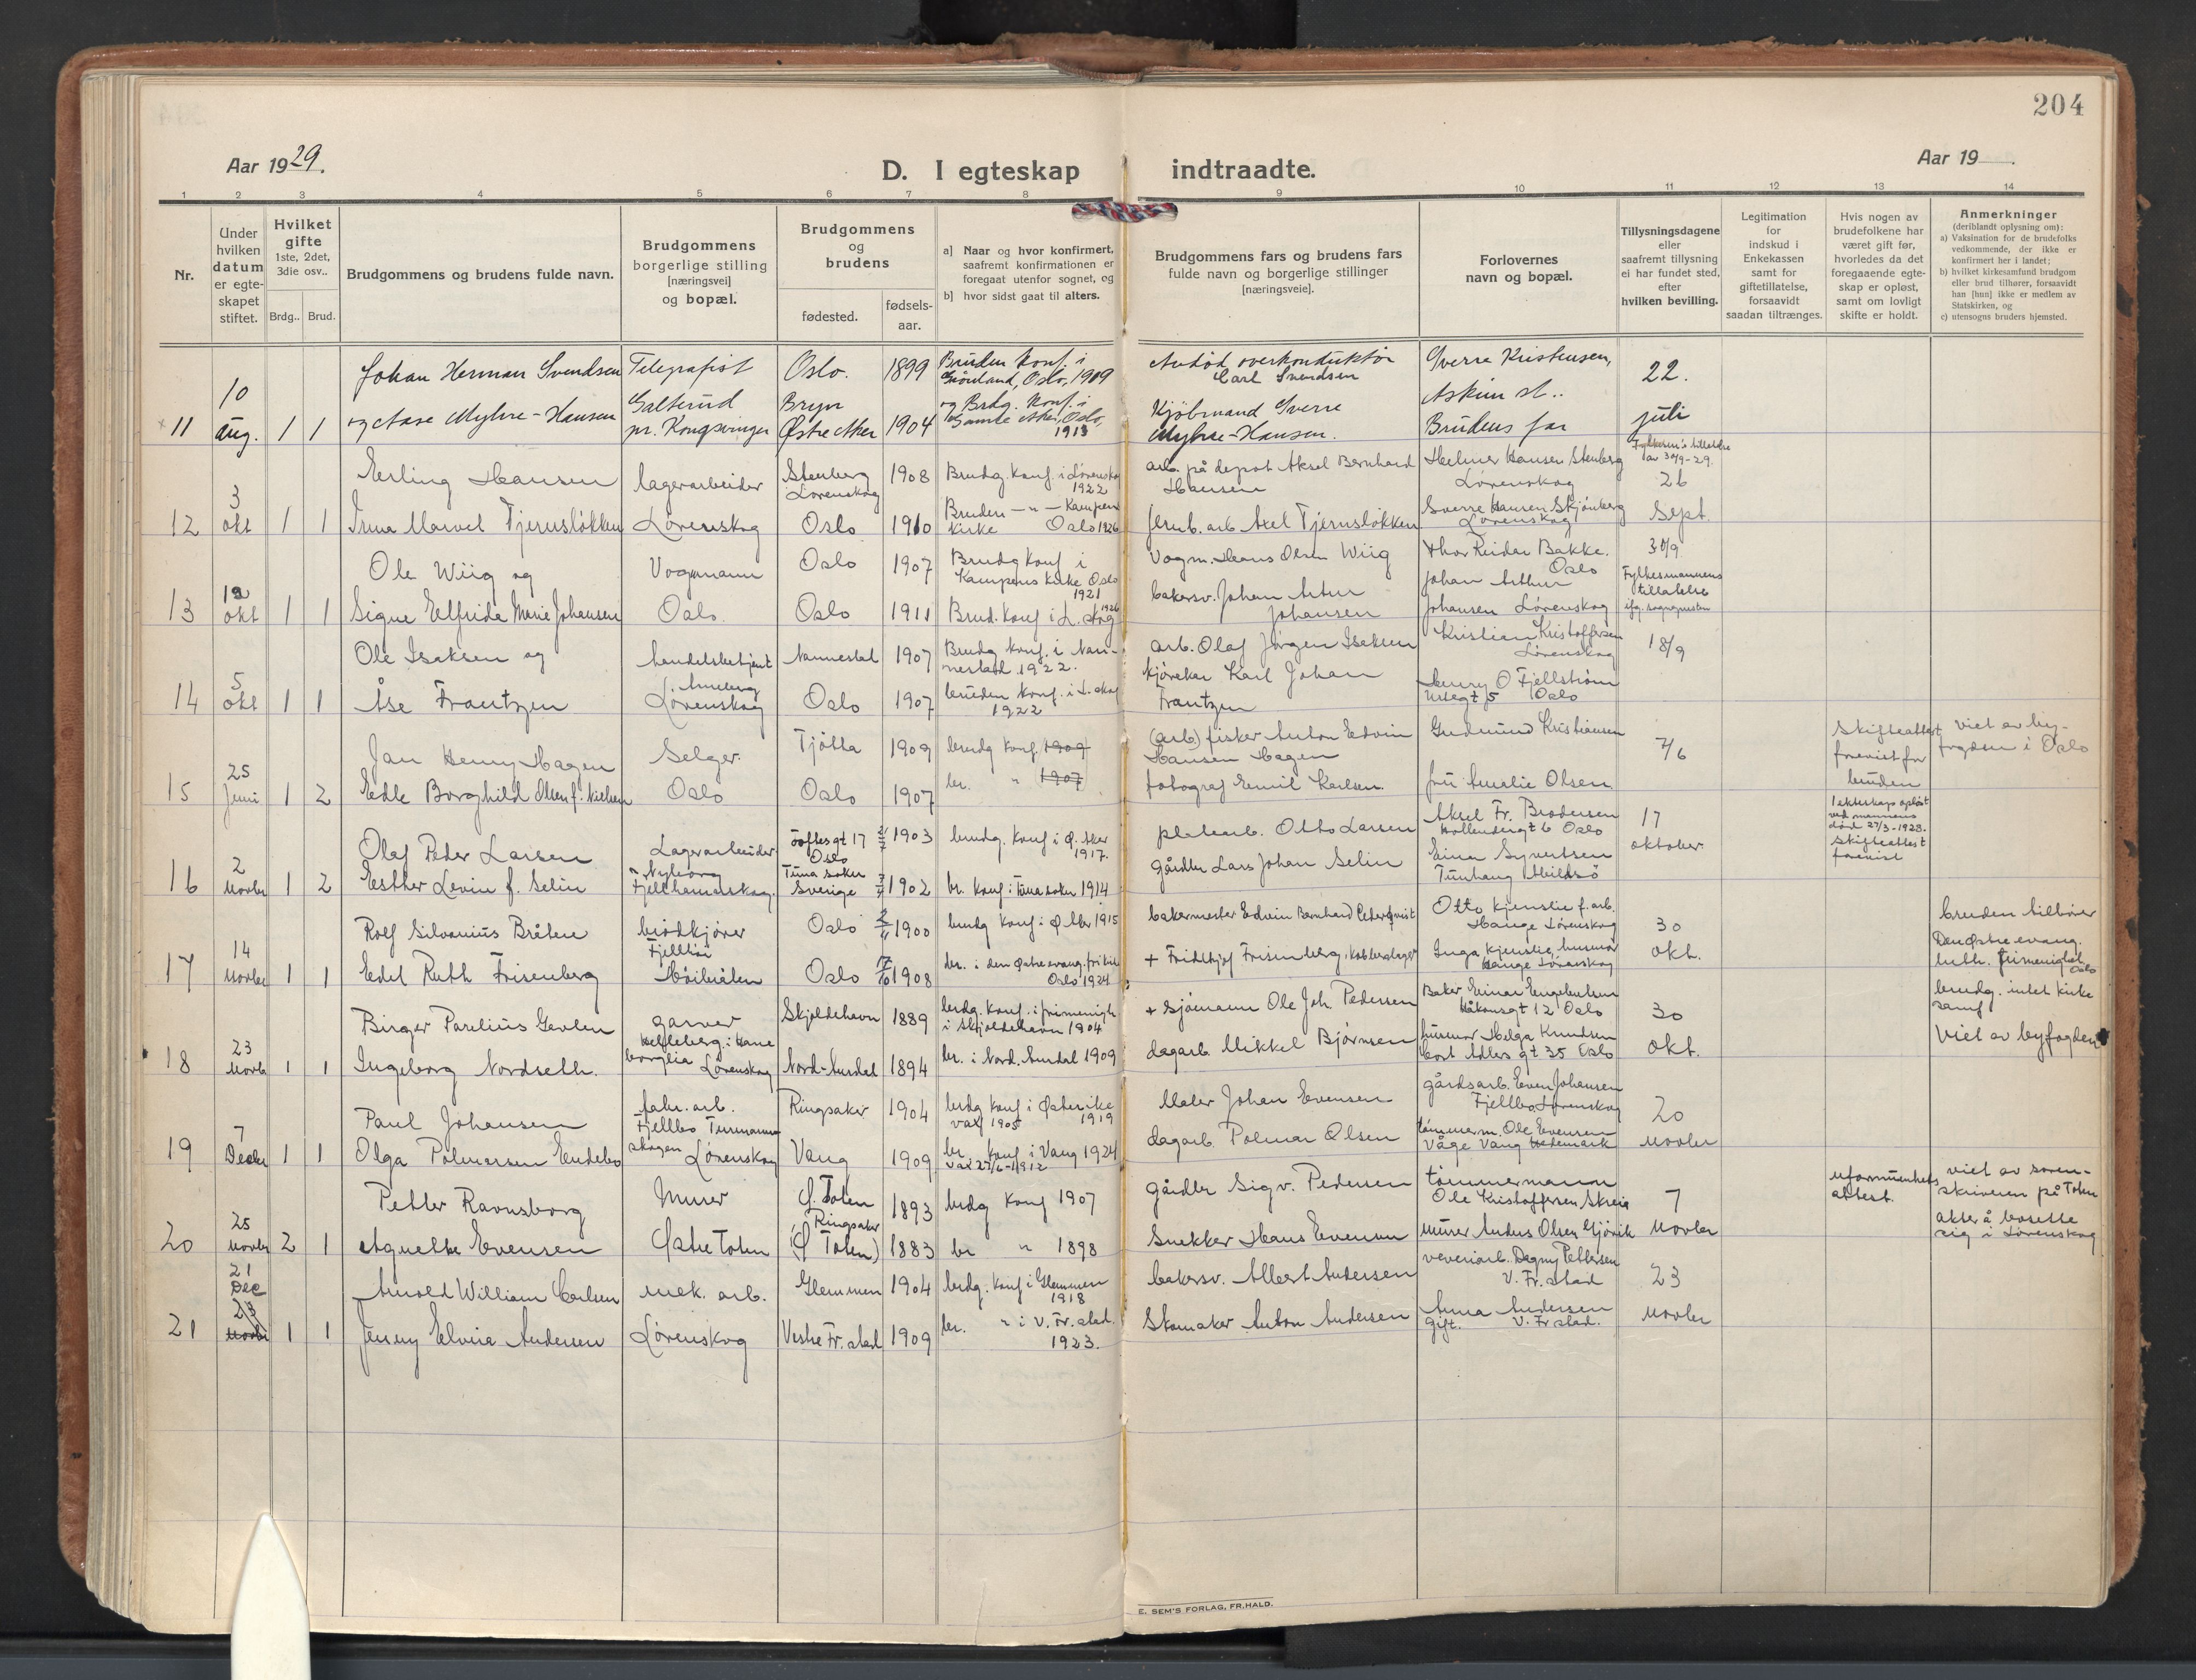 204
Aar 1929.
D. I egteskap indtraadte.
Aar 19 .
1 2 3 4 5 6 7 8 9 10 11 12 13 14
Nr.
Under hvilken datum er egte-skapet stiftet.
Hvilket gifte
1ste, 2det, 3die osv..
Brdg.. Brud.
Brudgommens og brudens fulde navn.
Brudgommens borgerlige stilling [næringsvei] og bopæl.
Brudgommens og brudens
fødested.
fødsels-aar.
a] Naar og hvor konfirmert, saafremt konfirmationen er foregaat utenfor sognet, og
b] hvor sidst gaat til alters.
Brudgommens fars og brudens fars fulde navn og borgerlige stillinger [næringsveie].
Forlovernes navn og bopæl.
Tillysningsdagene eller saafremt tillysning ei har fundet sted, efter hvilken bevilling.
Legitimation for indskud i Enkekassen samt for giftetillatelse, forsaavidt saadan tiltrænges.
Hvis nogen av brudefolkene har været gift før, hvorledes da det foregaaende egte-skap er opløst, samt om lovligt skifte er holdt.
Anmerkninger
(deriblandt oplysning om):
a) Vaksination for de brudefolks vedkommende, der ikke er konfirmert her i landet;
b) hvilket kirkesamfund brudgom eller brud tilhører, forsaavidt han [hun] ikke er medlem av Statskirken, og
c) utensogns bruders hjemsted.
Johan Herman Svendsen Telegrafist Oslo. 1899 Bruden konf. i Grönland, Oslo, 1909 Avdød overkonduktör Carl Svendsen Sverre Kristensen, Askim st.. 22.
11 10 Aug. 1 1 og Aase Myhre-Hansen Galterud pr. Kongsvinger Bryn Østre Aker 1904 og Brdg. konf. i Gamle Aker, Oslo, 1913 Kjöbmand Sverre Myhre-Hansen. Brudens far juli
Erling Hansen lagerarbeider Stenberg Lørenskog 1908 Brudg. konf. i Lørenskog 1922 arb. på depot Aksel Bernhard Hansen Helmer Hansen Stenberg Lørenskog 26
12 3 okt 1 1 Irma Marvel Tjernsløkken Lørenskog Oslo 1910 Bruden — " — Kampen kirke Oslo 1926 jernb. arb Axel Tjernsløkken Sverre Hansen Skjønberg Lørenskog Sept.
Ole Wiig og Vognmann Oslo 1907 Brudg konf i Kampens kirke Oslo 1921 Vogm. Hans Olsen Wiig Thor Reidar Bakke. Oslo 30/9
13 okt 1 1 Signe Elfrida Marie Johansen Oslo. Oslo 1911 Brud. konf i L. skog 1926 bakersv. Johan Artur Johansen Johan Arthur Johansen Lørenskog Fylkesmannens tillatelse
Ole Isaksen og handelsbetjent Nannestad 1907 Brudg konf. i Nannestad 1922. arb. Olaf Jørgen Isaksen Kristian Kristoffersen Lørenskog 18/9
14 5 okt 1 1 Åse Frantzen Lørenskog Oslo 1907 bruden konf. i L. skog 1922 kjørekar Karl Johan Frantzen Henry O Fjellstrøm Urtegt 5 Oslo
Jan Henny Hagen Selger. Tjøtta 1909 brudg konf. 1909 (arb.) fisker Anton Edvin Hansen Hagen Gudmund Kristiansen 7/6 Skifteattest forevist for bruden viet av byfogden i Oslo
15 25 Juni 1 2 Edle Borghild Olsen f. Nielsen Oslo Oslo 1907 br. " 1907 fotograf Emil Karlsen. fru Amalie Olsen
Olaf Peder Larsen Lagerarbeider Toftesgt 17 Oslo 1903 brudg. konf i Ø. Aker 1917. platearb. Otto Larsen Aksel Fr. Brodersen Hollendergt 6 Oslo 17 oktober. 1 ekteskap opløst ved mannens død 27/3-1928. Skifteattest forevist
16 2 Novbr 1 2 Esther Levin f. Selin Nyborg Fjellhamarskog. Tuna soken Sverige 1902 br. konf i Tuna soken 1914 gårdbr Lars Johan Selin Einar Syvertsen
Rolf Silvanius Bråten brødkjører Oslo 1900 brudg konf i Ø. Aker 1915 bakermester Edvin Bernhard Otto Kjenslie f. arb. Hauge Lørenskog 30 bruden tilhører Den Østre evang. luth. frimenighet Oslo
17 14 Novbr 1 1 Edel Ruth Frisenberg Fjellhøi Høibråten Oslo 1908 br. i den Østre evang. frikirke Oslo 1924 + Fridthjof Frisenberg, kobberslager Inga Kjenslie, husmor Hauge Lørenskog okt.
Birger Parelius Gevlen garver Skjoldehavn 1889 brdg. konf. i frimenigh. i Skjoldehavn 1904 + sjømann Ole Joh. Pedersen Baker Einar Engebretsen Håkonsgt 12 Oslo 30 brudg. intet kirke samf
18 23 Novbr 1 1 Ingeborg Nordseth. Lørenskog Nord-Aurdal 1894 br. i Nord. Aurdal 1909 dagarb. Mikkel Bjørnsen husmor Helga Knudsen Cort Adlers gt 35 Oslo okt. Viet av byfogden
Paul Johansen fabr. arb. Ringsaker 1904 brdg konf i Østerrike 1919 vax 1905 Maler Johan Evensen gårdsarb. Even Johansen Fjellbo, Lørenskog 20
19 7 Decbr 1 1 Olga Palmarsen Endebo Fjellbo Tismannskogen Lørenskog Vang 1909 br konf i Vang 1924 vax 27/6-1912 dagarb. Polmar Olsen tømmerm. Ole Evensen Våge Vang Hedemark Novbr
Petter Ravnsborg Murer Ø. Toten 1893 brdg konf 1907 gårdbr Sigv. Pedersen tømmermann Ole Kristoffersen Skreia 7 uformuenhetsattest. viet av sorenskriveren på Toten akter å bosette sig i Lørenskog
20 25 Novbr 2 1 Agnethe Evensen Østre Toten Ringsaker (Ø Toten) 1883 br " 1898 Snekker Hans Evensen murer Anders Olsen Gjøvik Novbr
Arnold William Carlsen mek. arb. Glemmen 1904 brdg. konf i Glemmen 1918 bakersv. Albert Andersen veveriarb. Dagny Pettersen V. Fr.stad 23
21 21 Dec 23 Novbr 1 1 Jenny Elvira Andersen Lørenskog Vestre Fr.stad 1909 br. " i V. Fr.stad. 1923. Skomaker Anton Andersen Anna Andersen gift. V. Fr.stad. Novbr
E. SEM'S FORLAG, FR.HALD.